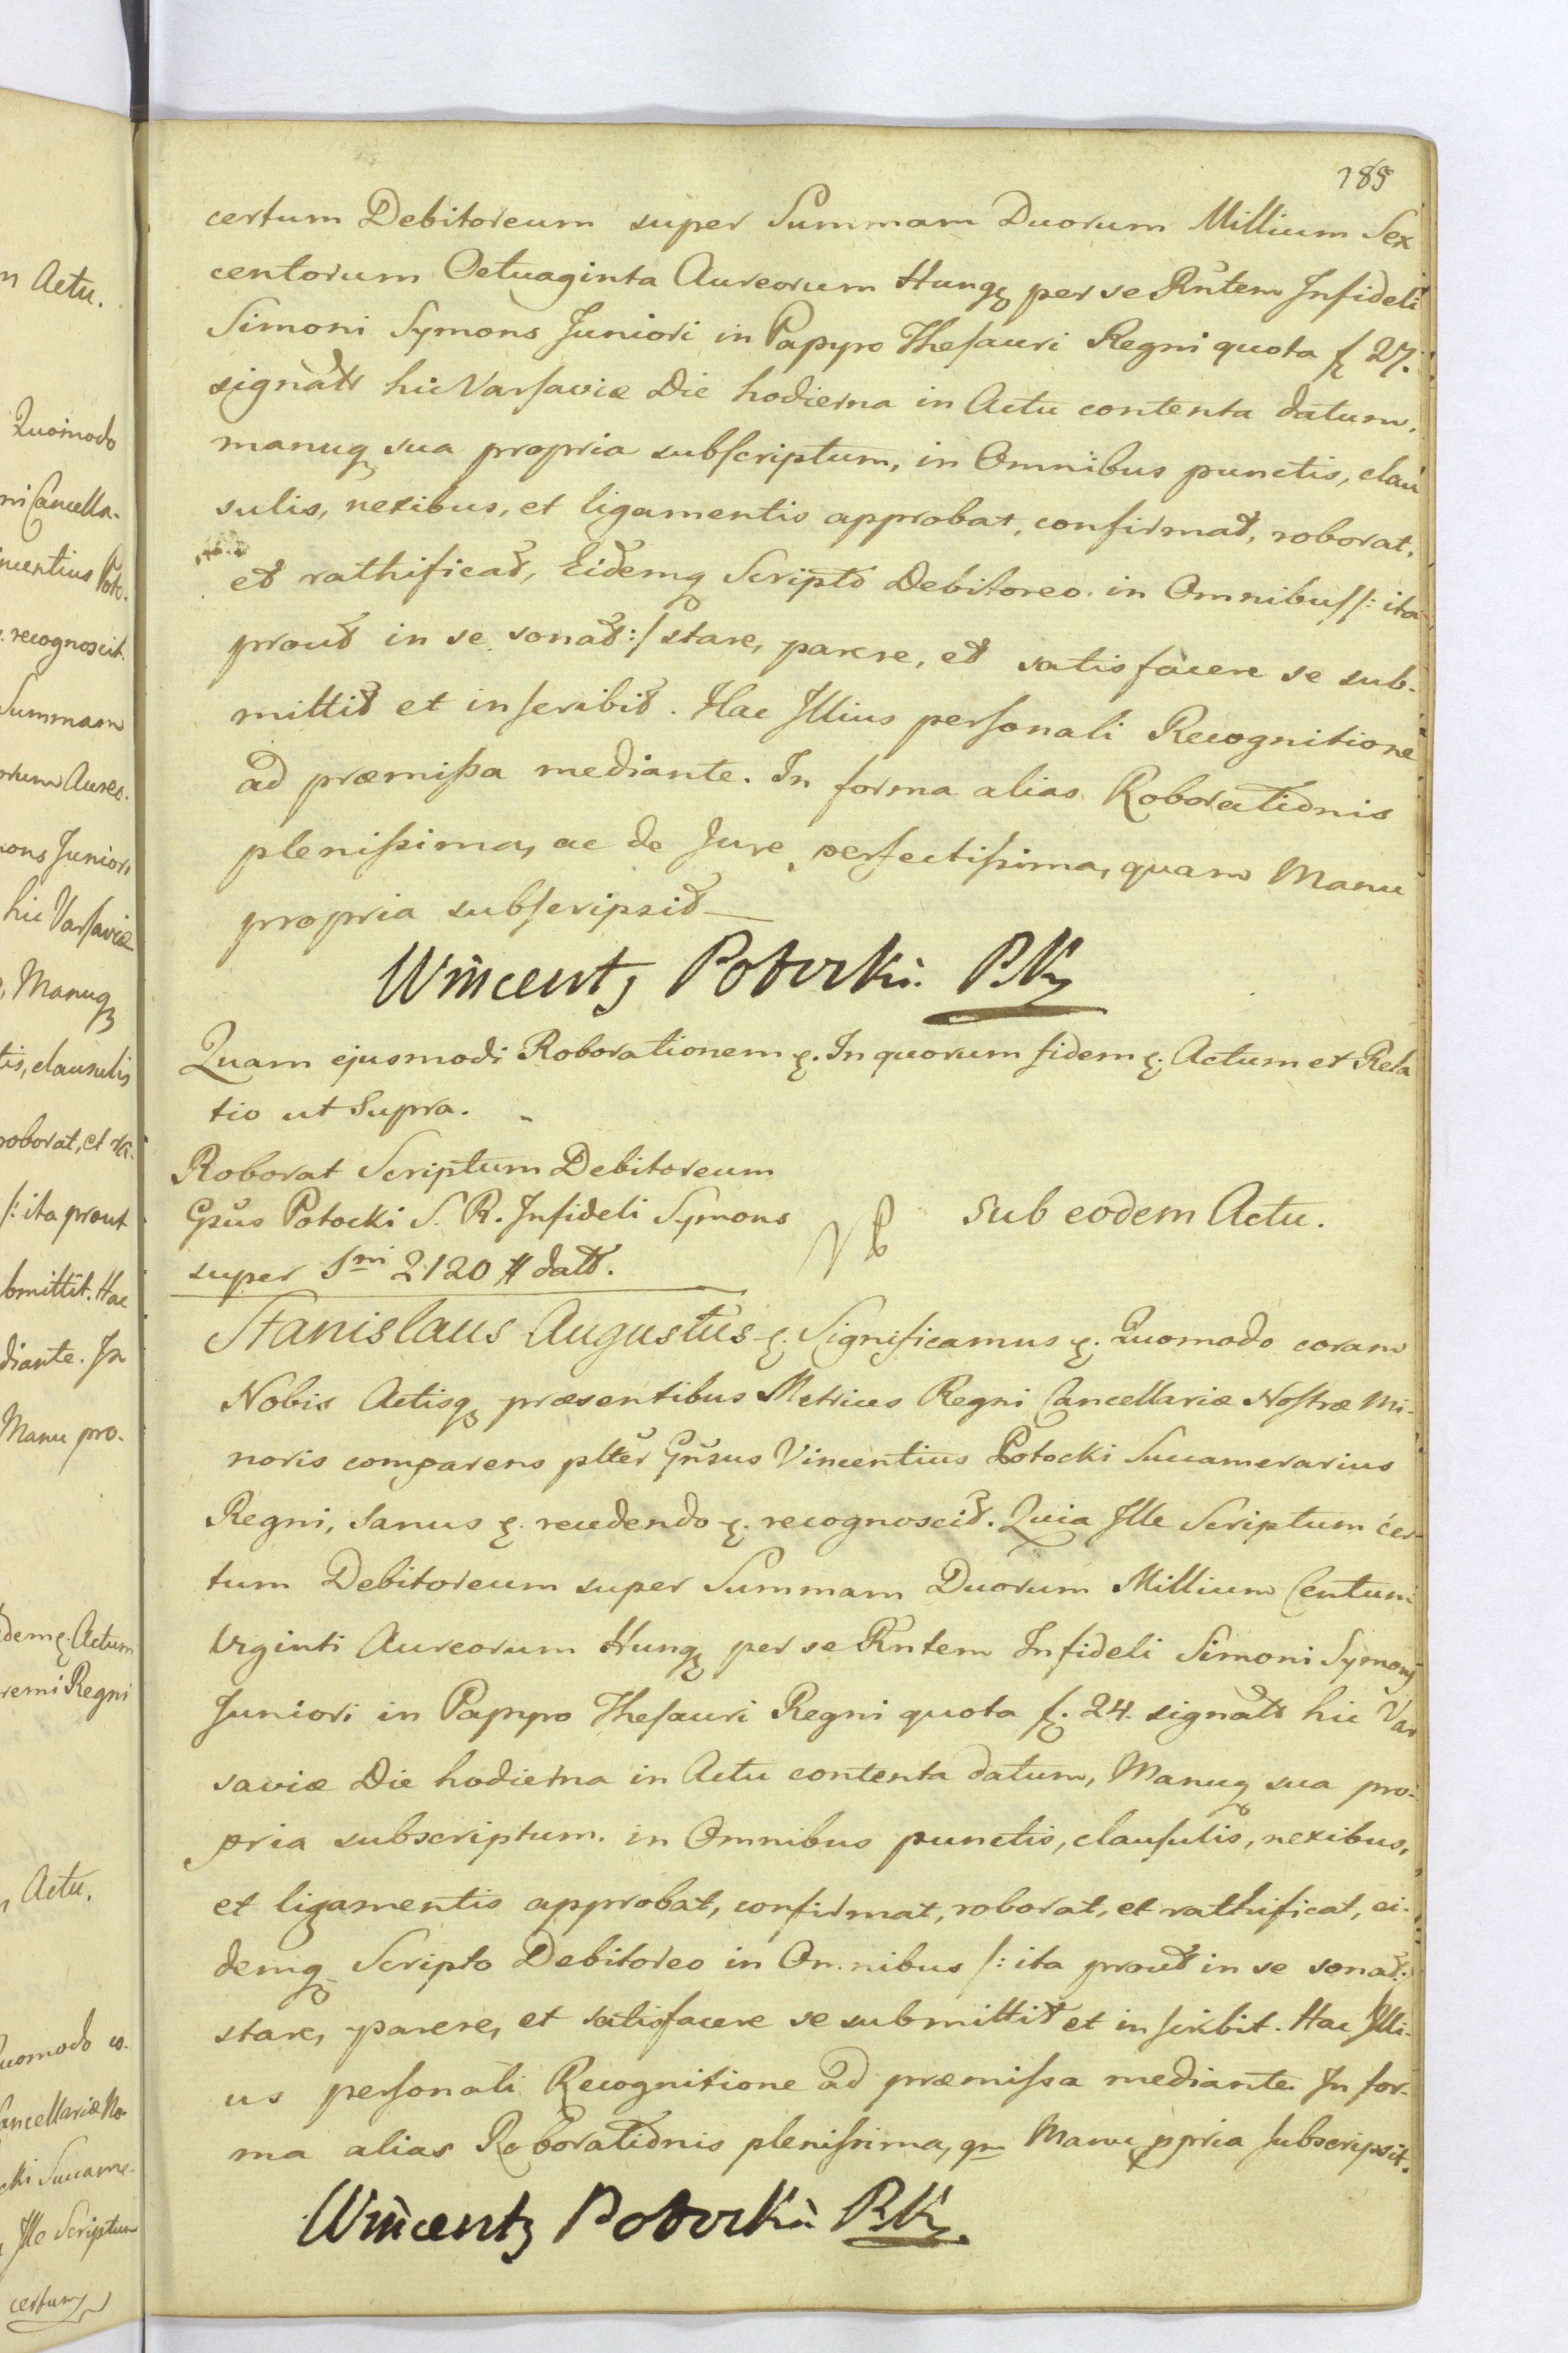 n Actu.
Quoimodo
ni Cancella-
ncentius Poto-
. recognoscit.
Summam
orum Aureo-
ons Juniori
hic Varsaviæ
, Manuq
tis, clausulis
roborat, et ra-
/: ita prout
bmittit. Hac
diante. In
Manu pro-
demq. Actum
remi Regni
n Actu.
uomodo co-
Cancellariæ No-
cki Succame-
Ille Scriptum
certum
185
certum Debitoreum super Summam Duorum Millium Sex
centorum Octuaginta Aureorum Hungq per se Rntem Infideli
Simoni Symons Juniori in Papyro Thesauri Regni quota f 27.
signatt hic Varsaviæ Die hodierna in Actu contenta datum,
manuq sua propria subscriptum, in Omnibus punctis, clau
sulis, nexibus, et ligamentis approbat, confirmat, roborat,
et rathificat, Eidemq Scripto Debitoreo in Omnibus /: ita
prout in se sonat :/ stare, parere, et satisfacere se sub-
mittit et inscribit. Hac Illius personali Recognitione
ad præmissa mediante. In forma alias Roborationis
plenissima, ac de Jure perfectissima, quam Manu
propria subscripsit
Wincenty Potocki PK
Quam ejusmodi Roborationem q. In quorum fidem q. Actum et Rela
tio ut Supra.
Roborat Scriptum Debitoreum
Gsus Potocki S. R. Infideli Symons
super Sm̄ 2120 # datt.
sub eodem Actu.
Stanislaus Augustus q. Significamus q. Quomodo coram
Nobis Actisq præsentibus Metrices Regni Cancellariæ Nostræ Mi-
noris comparens plter Gnsus Vincentius Potocki Succamerarius
Regni, Sanus q. recedendo q. recognoscit. Quia Ille Scriptum cer-
tum Debitoreum super Summam Duorum Millium Centum
Viginti Aureorum Hungq per se Rntem Infideli Simoni Symons
Juniori in Papyro Thesauri Regni quota f. 24. signatt hic Var
saviæ Die hodierna in Actu contenta datum, Manuq sua pro-
pria subscriptum. in Omnibus punctis, clausulis, nexibus,
et ligamentis approbat, confirmat, roborat, et rathificat, ei-
demq Scripto Debitoreo in Omnibus /: ita prout in se sonat :/
stare, parere, et satisfacere se submittit et inscribit. Hac Illi-
us personali Recognitione ad præmissa mediante. In for-
ma alias Roborationis plenissima, qm Manu ppria subscripsit.
Wincenty Potocki PK.